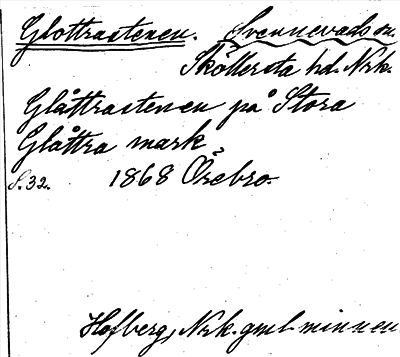 Glottrastenen. Svennevads sn.
Sköllersta hd. Nrk.
Glåttrastenen på Stora
Glåttra mark
S. 32. 1868 Örebro.
Hofberg, Nrk. gml. minnen